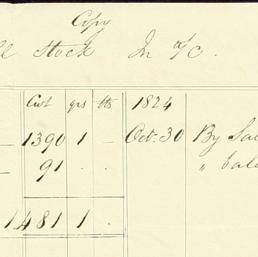 Copy
Stock In a/c.
Cwt qrs lbs 1824
1390 1 - Oct. 30 By Sa
91 . . "
1481 1 .